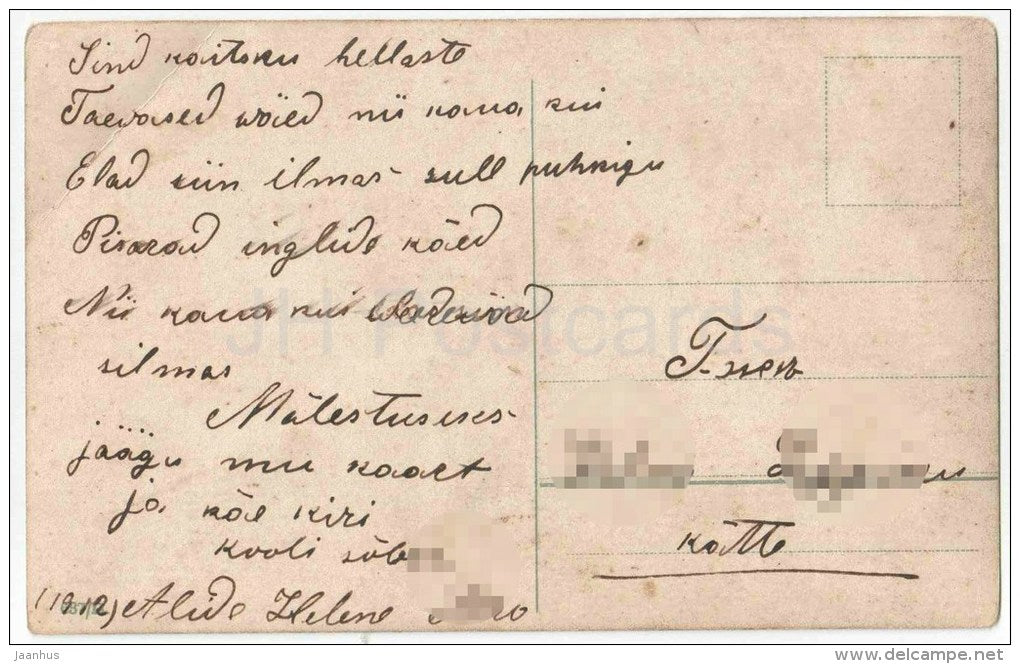 Sind kaitsku hellaste
Taevased wäed nii kaua kui
Elad siin ilmas sull puhkigu
Pisarad inglide käed
Nii kaua kui
silmas
Mälestuseks
jäägu mu kaart
ja käe kiri
kooli sõb
(1912) Alide Helene
Г-жев
kätte
JH Postcards
jaanhus
www.delcampe.net